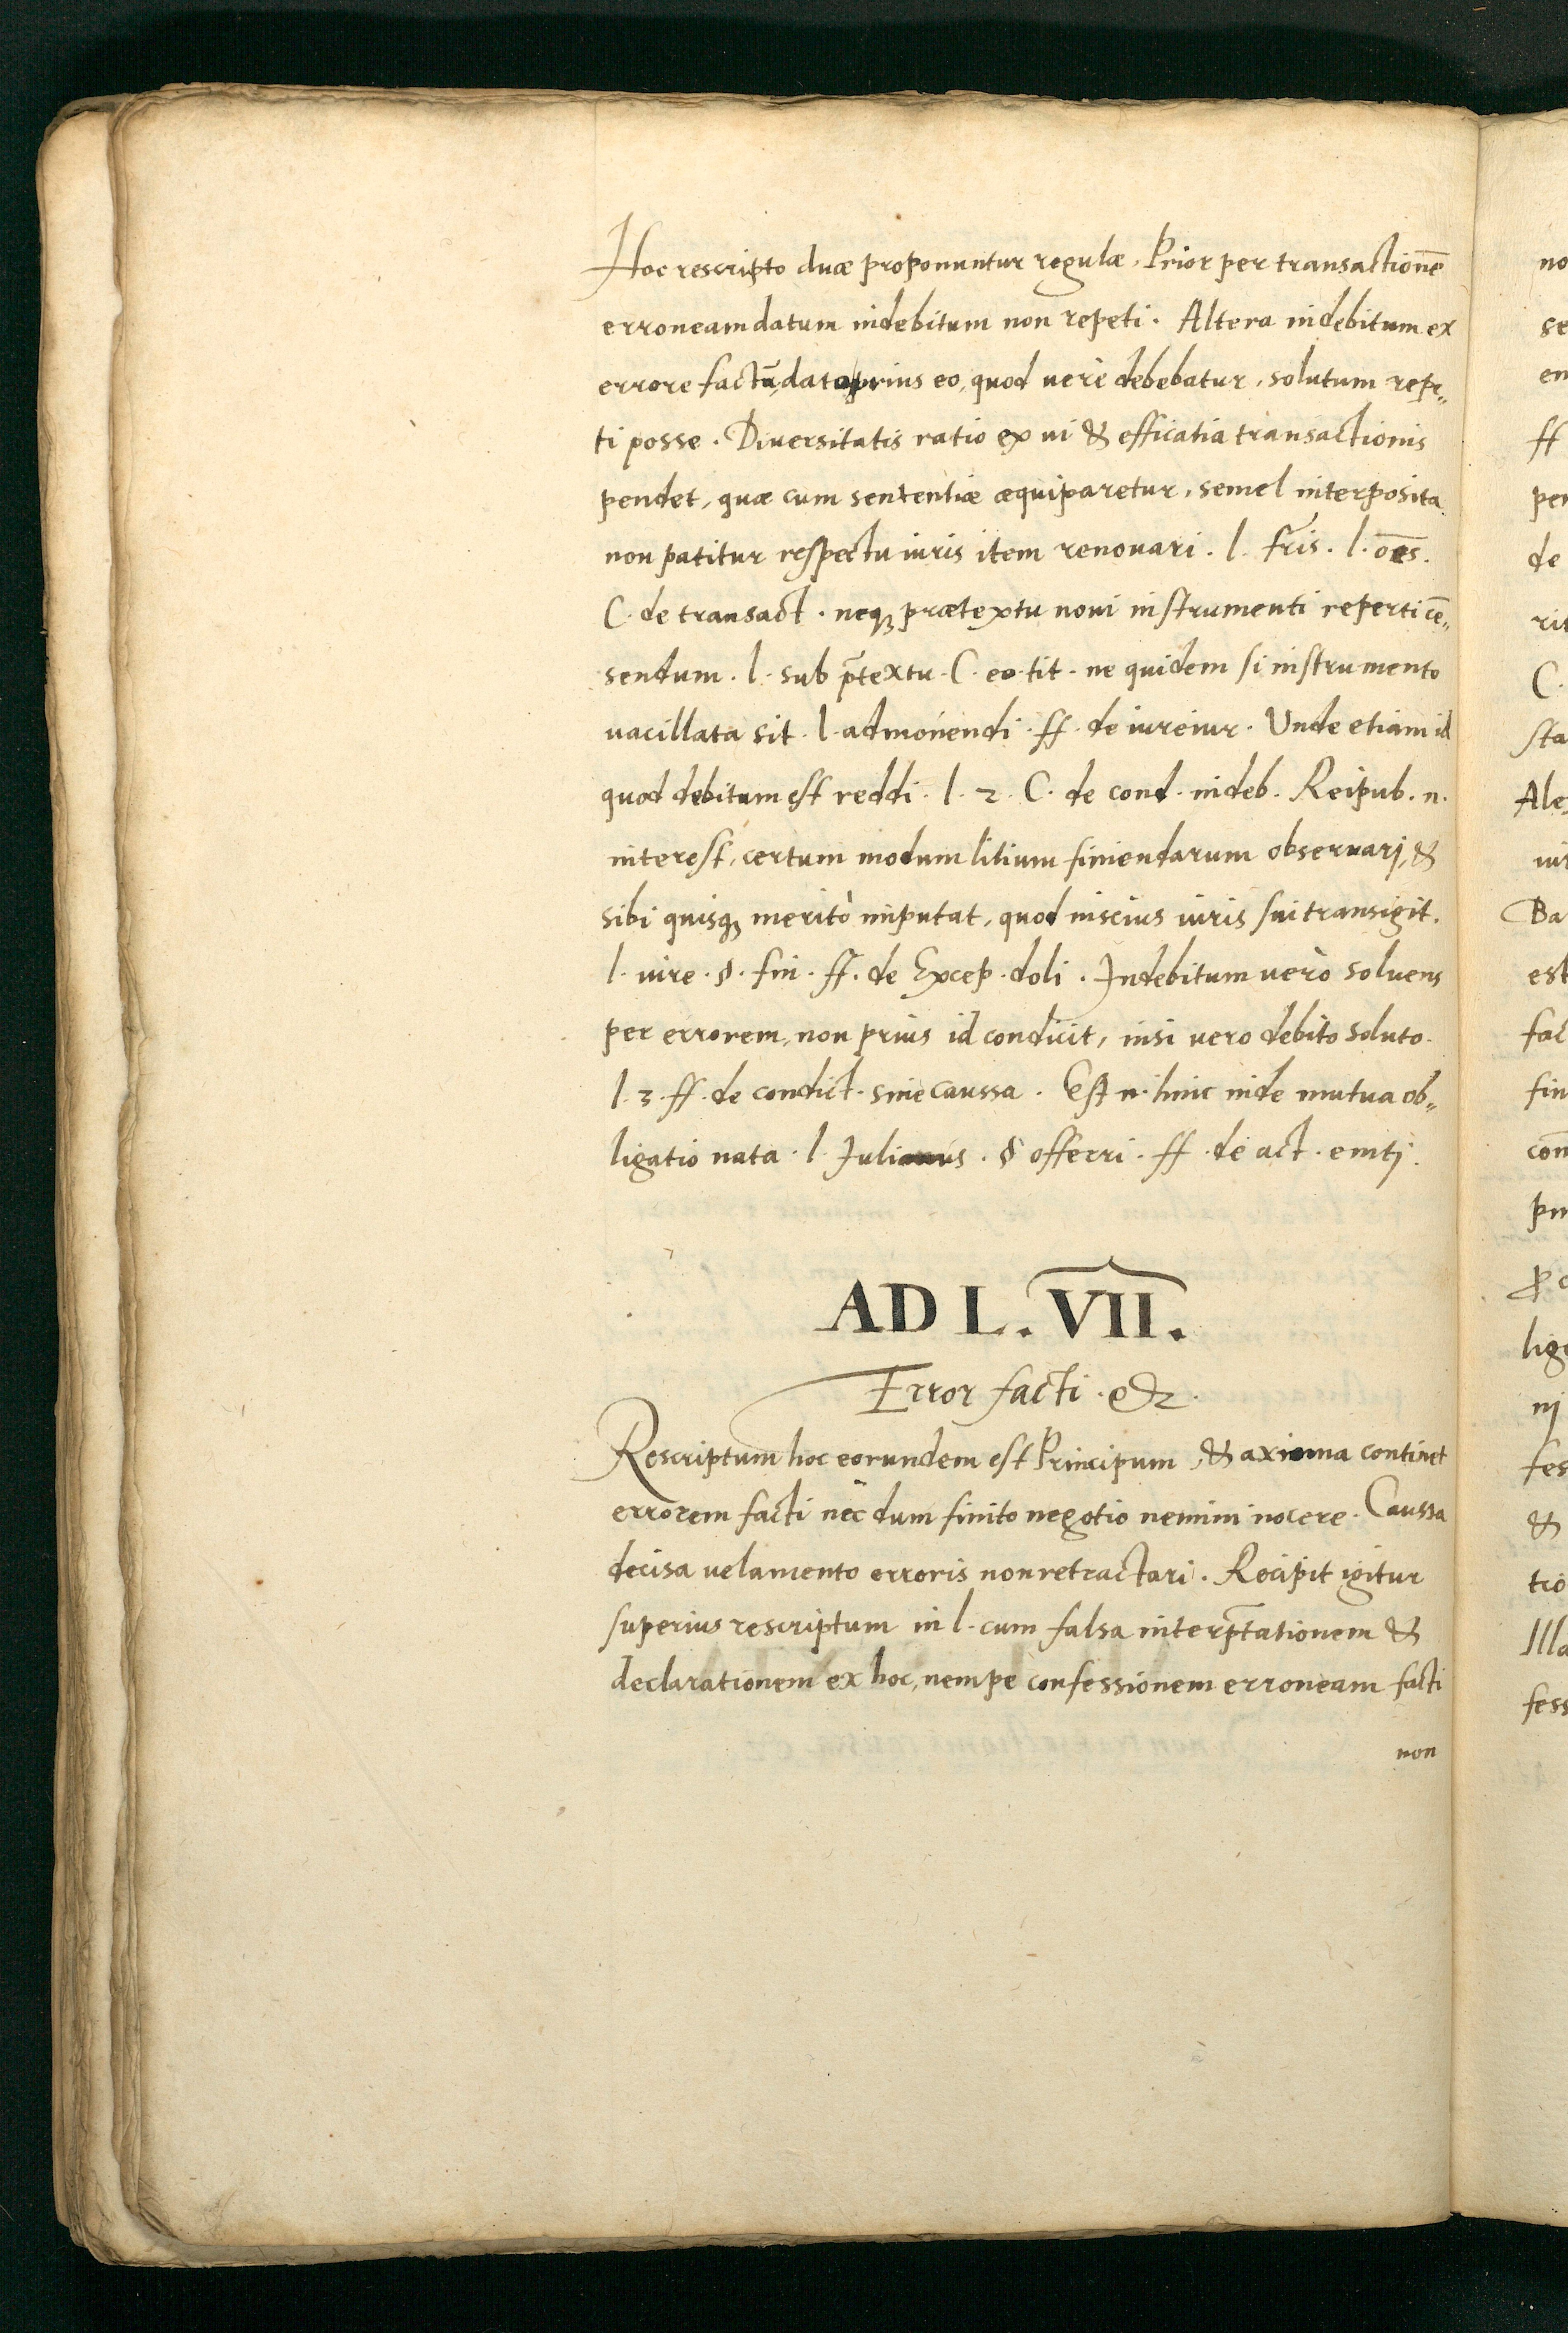 Hoc rescripto duæ proponuntur regulæ. Prior per transactionē
erroneam datum indebitum non repeti. Altera indebitum ex
errore factū, dato prius eo, quod uerè debebatur, solutum repe„
ti posse. Diuersitatis ratio ex ui & efficatia transactionis
pendet, quæ cum sententiæ æquiparetur, semel interposita
non patitur respectu iuris item renouari. l. fr̃is. l. oēs.
C. de transact. neq; prætextu noui instrumenti reperti cē„
sendum. l. sub p̄textu. C. eo. tit. ne quidem si instrumento
uacillata sit. l. admonendi. ff. de iureiur. Unde etiam id
quod debitum est reddi. l. 2. C. de cond. indeb. Reipub. n.
interest, certum modum litium finiendarum obseruarj, &
sibi quisq; meritò imputat, quod inscius iuris sui transigit.
l. iure. §. fin. ff. de Excep. doli. Indebitum uerò soluens
per errorem, non prius id condicit, nisi uero debito soluto.
l. 3. ff. de condict. sine caussa. Est n. hinc inde mutua ob„
ligatio nata. l. Julianus. § offerri. ff. de act. emtj.
AD L. VII.
Error facti. &c.
Rescriptum hoc eorundem est Principum, & axioma continet
errorem facti nec dum finito negotio nemini nocere. Caussa
decisa uelamento erroris non retractari. Recipit igitur
superius rescriptum in l. cum falsa interp̄tationem &
declarationem ex hoc, nempe confessionem erroneam facti
non